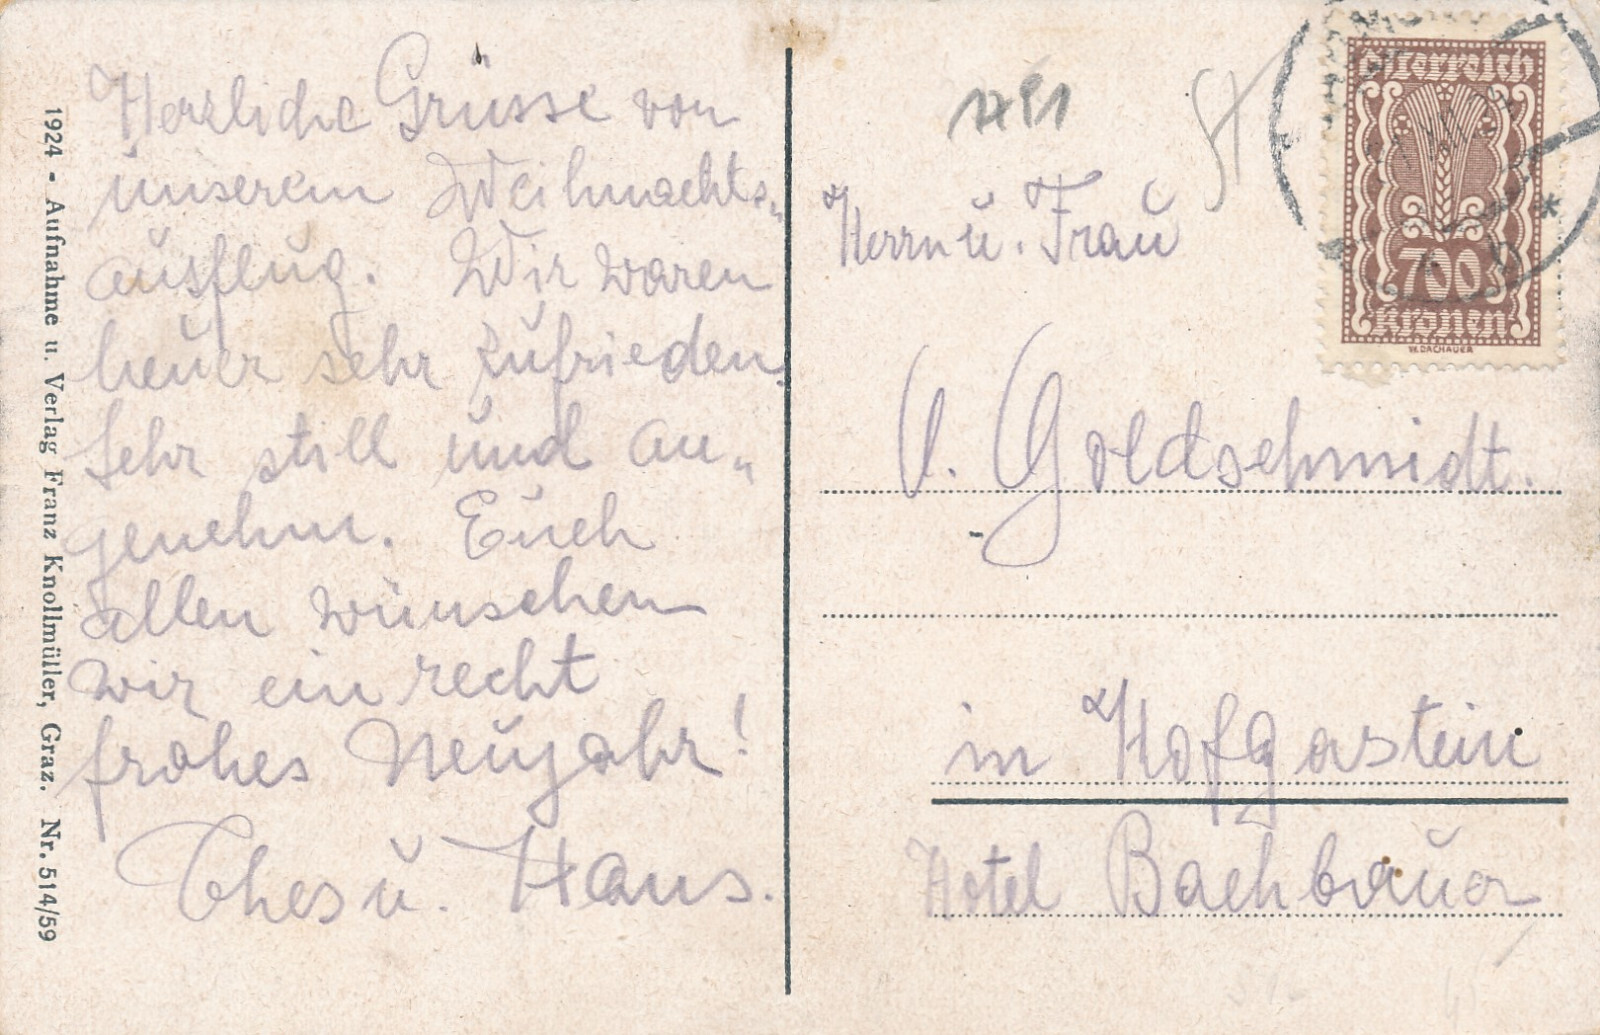 Herzliche Grüsse von
unserem Weihnachts„
ausflug. Wir waren
heuer sehr zufrieden.
Sehr still und an„
genehm. Euch
allen wünschen
wir ein recht
frohes Neujahr!
Thes u. Hans.
1924 - Aufnahme u. Verlag Franz Knollmüller, Graz. Nr. 514/59
Herrn u. Frau
Goldschmidt.
in Hofgastein
Hotel Bachbauer
Österreich
700
Kronen
W. DACHAUER